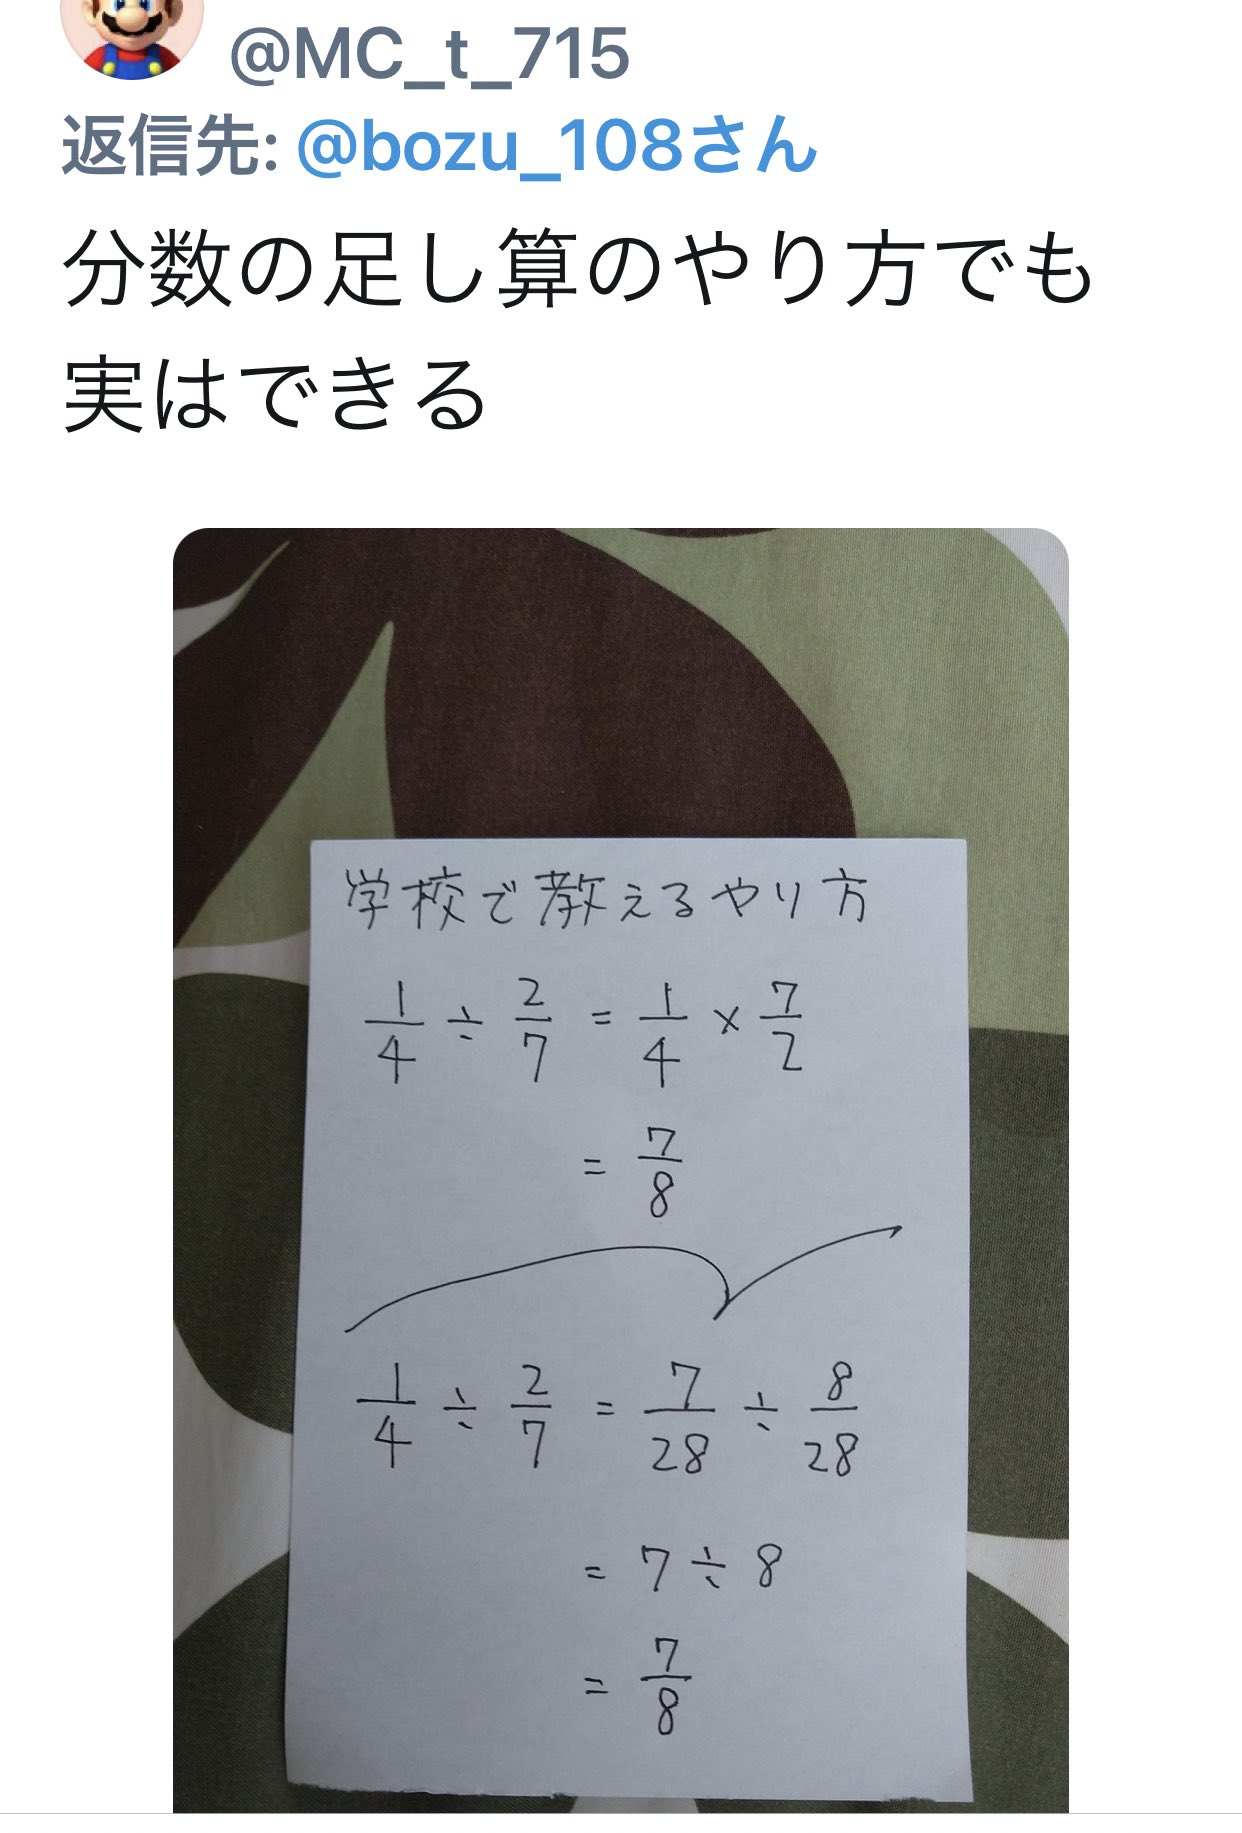 @MC_t_715
返信先: @bozu_108さん
分数の足し算のやり方でも
実はできる
学校で教えるやり方
1/4 ÷ 2/7 = 1/4 × 7/2
= 7/8
1/4 ÷ 2/7 = 7/28 ÷ 8/28
= 7 ÷ 8
= 7/8